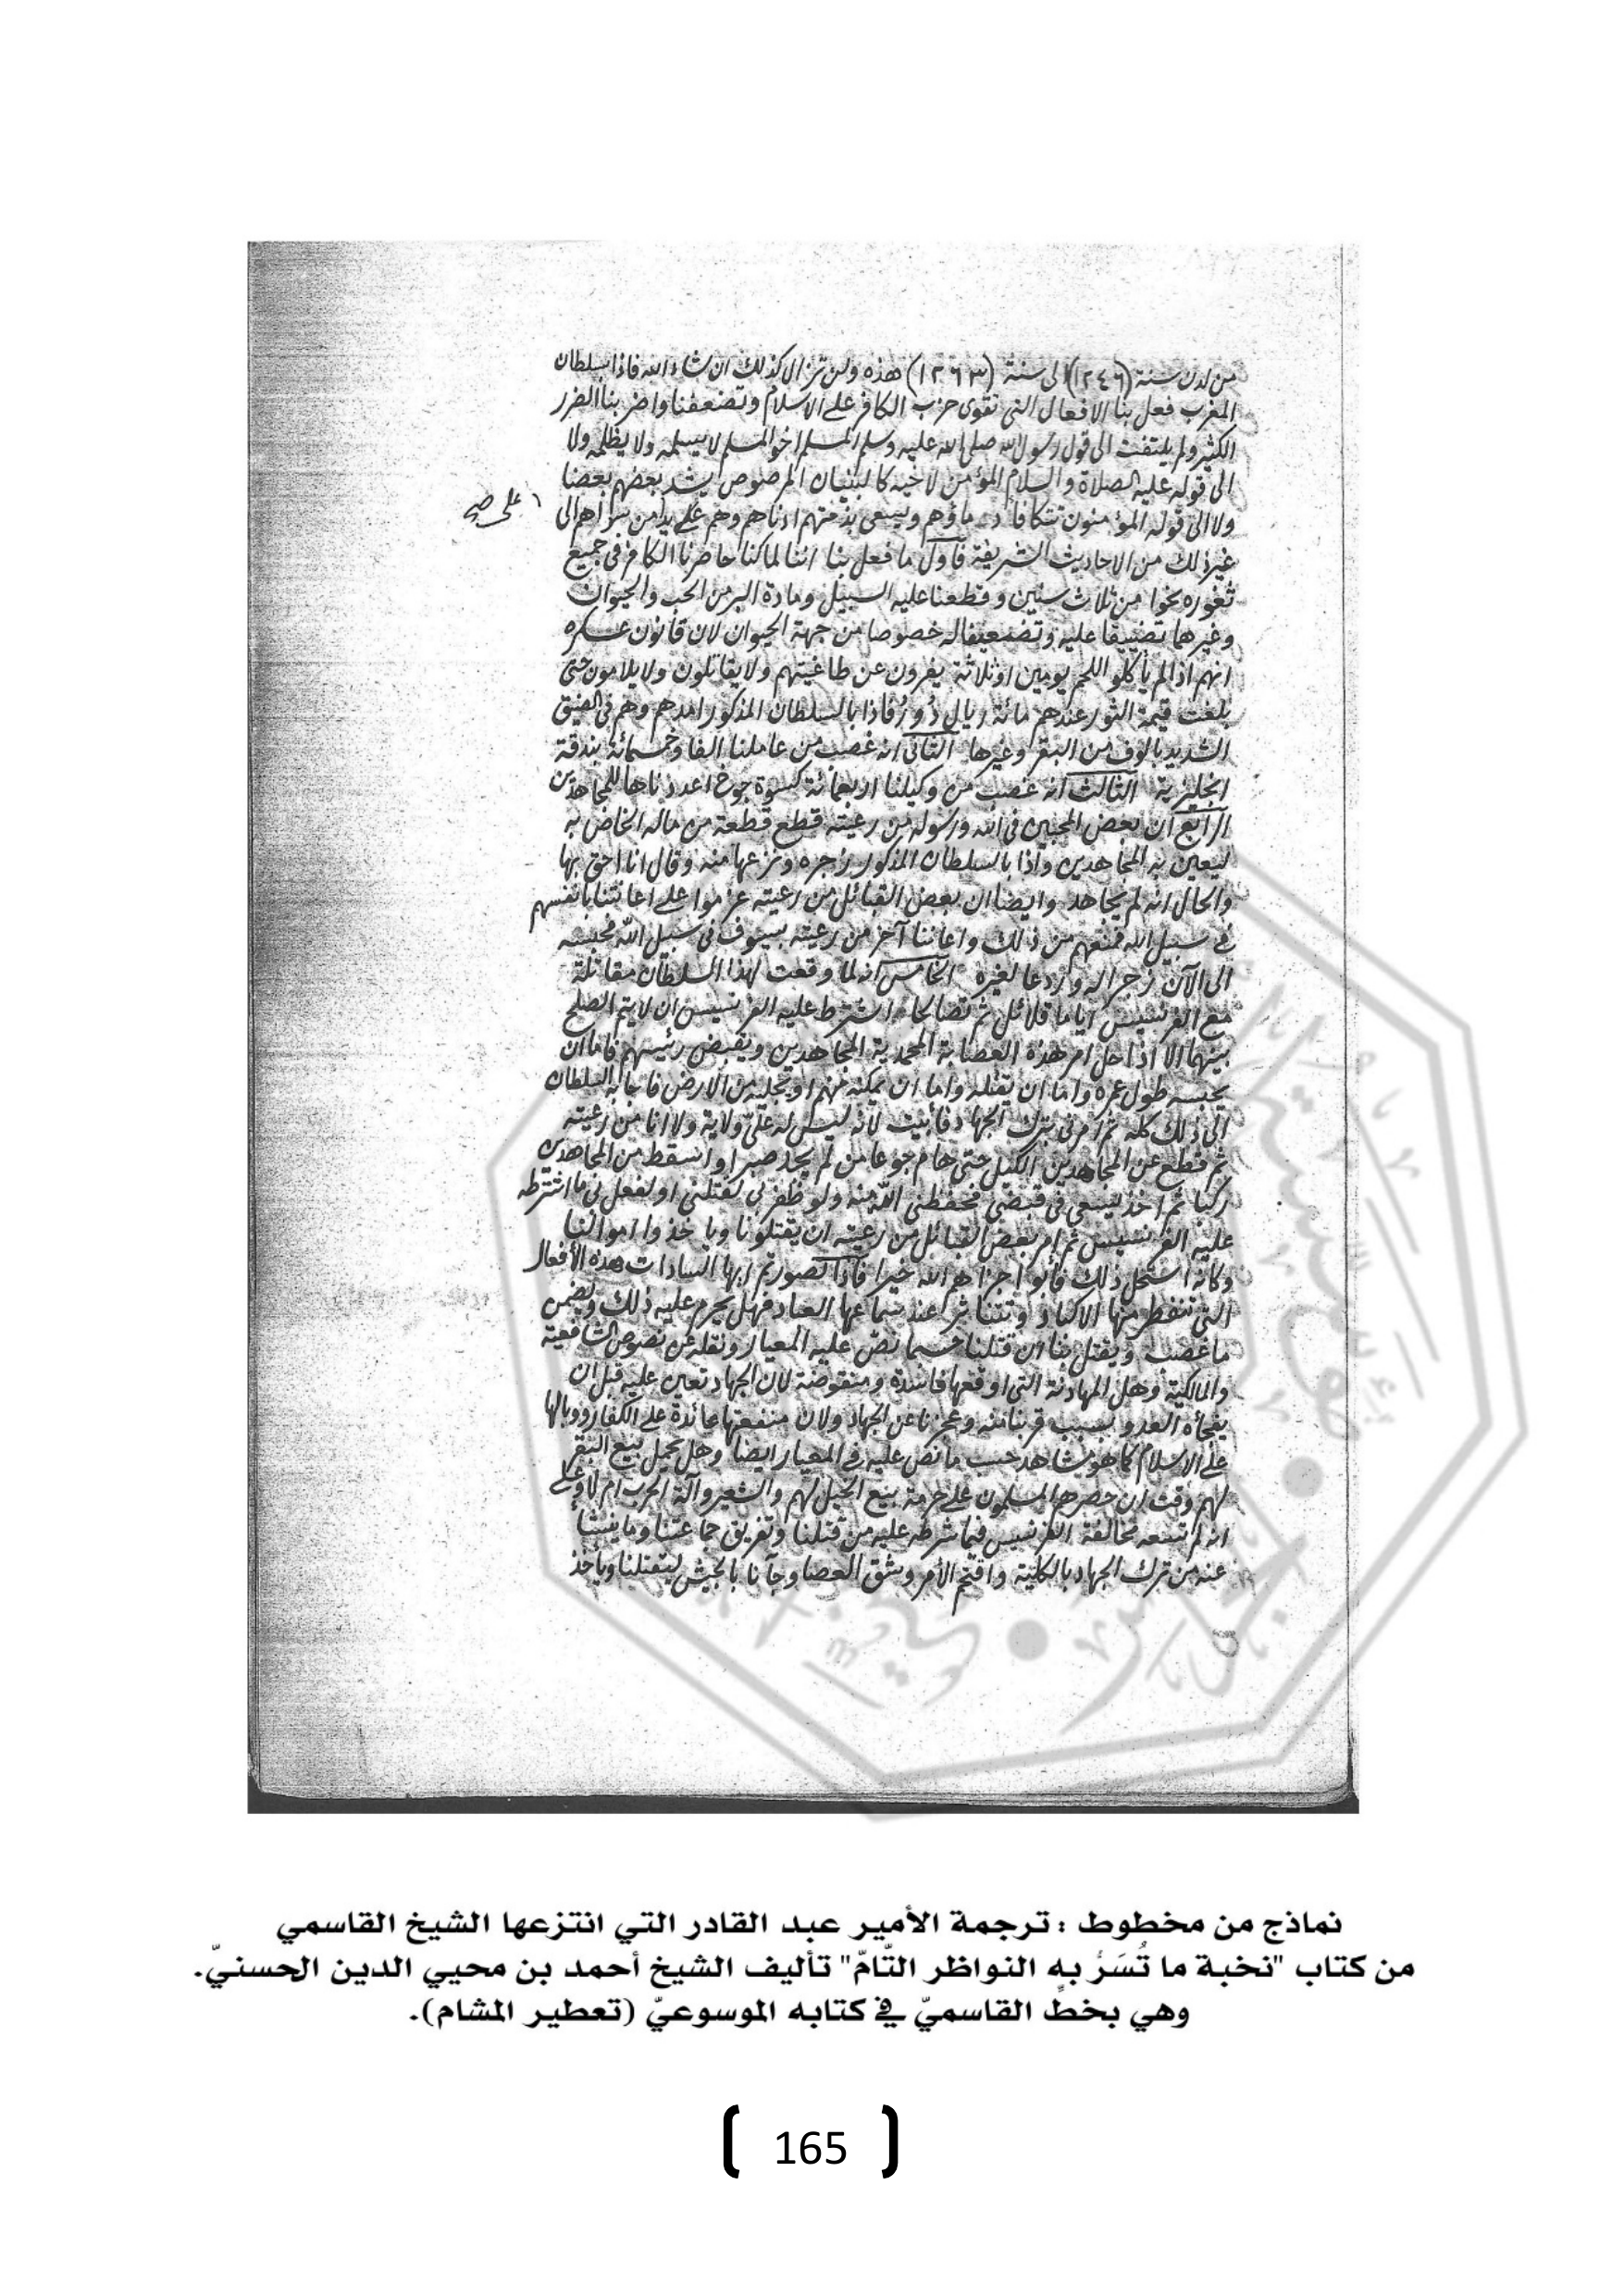 من لدن سنة (١٢٤٦) الى سنة (١٢٦٣) هذه ولن تزال كذلك ان شاء الله فاذا سلطان
المغرب فعل بنا الافعال التي تقوى حزب الكافر على الاسلام وتضعفنا واضر بنا الضرر
الكثير ولم يلتفت الى قول رسول الله صلى الله عليه وسلم المسلم اخو المسلم لا يسلمه ولا يظلمه ولا
الى قوله عليه الصلاة والسلام المؤمن لاخيه كالبنيان المرصوص يشد بعضهم بعضا
ولا الى قوله المؤمنون تتكافأ دماؤهم ويسعى بذمتهم ادناهم وهم على يد من سواهم الى
غير ذلك من الاحاديث الشريفة فأول ما فعل بنا اننا لما كنا حاصرنا الكافر في جميع
ثغوره نحوا من ثلاث سنين وقطعنا عليه السبيل ومادة البر من الحب والحيوان
وغيرها تضييقا عليه وتضعيفا له خصوصا من جهة الحيوان لان قانون عسكره
انهم اذا لم يأكلوا اللحم يومين او ثلاثة يفرون عن طاغيتهم ولا يقاتلون ولا يلامون حتى
بلغت قيمة الثور عندهم مائة ريال دورو فاذا بالسلطان المذكور امدهم وهم في الضيق
الشديد بالوف من البقر وغيرها الثاني انه غصب من عاملنا الفا وخمسمائة بندقة
انجليزية الثالث انه غصب من وكيلنا اربعمائة كسوة جوخ اعددناها للمجاهدين
الرابع ان بعض المحبين في الله ورسوله من رعيته قطع قطعة من ماله الخاص به
ليعين به المجاهدين واذا بالسلطان المذكور زجره ونزعها منه وقال انا احق بها
والحال انه لم يجاهد وايضا ان بعض القبائل من رعيته عزموا على اعانتنا بانفسهم
في سبيل الله فمنعهم من ذلك واعاننا آخر من رعيته بسيوف في سبيل الله فحبسه
الى الآن زجرا له وردعا لغيره الخامس انه لما وقعت لهذا السلطان مقاتلة
مع الفرنسيس اياما قلائل ثم تصالحا اشترط عليه الفرنسيس ان لا يتم الصلح
بينهما الا اذا حل امر هذه العصابة المحمدية المجاهدين ويقبض رئيسهم فاما ان
يحبسه طول عمره واما ان يقتله واما ان يمكنه منهم او يجليه من الارض فاجابه السلطان
الى ذلك كله ثم امرني بترك الجهاد فأبيت لانه ليس له علىّ ولاية ولا انا من رعيته
ثم قطع عن المجاهدين الكيل حتى هام جوعا من لم يجد صبرا واسقط من المجاهدين
ركنا ثم اخذ يسعى في قبضي فحفظني الله منه ولو ظفر بي لقتلني او لفعل بي ما اشترطه
عليه الفرنسيس ثم امر بعض القبائل من رعيته ان يقتلونا ويأخذوا اموالنا
وكانه استحل ذلك فأبوا جزاهم الله خيرا فاذا تصورتم ايها السادات هذه الأفعال
التي تتفطر منها الاكباد وتتناثر عند سماعها العباد فهل يحرم عليه ذلك ويضمن
ما غصب ويقتل بنا ان قتلنا حسبما نص عليه المعيار ونقله عن نصوص الشافعية
والمالكية وهل المهادنة التي اوقعها فاسدة ومنقوضة لان الجهاد تعين عليه قبل ان
يفجأه العدو بسبب قربنا منه وعجزنا عن الجهاد ولان منفعتها عائدة على الكفار ووبالها
على الاسلام كما هو مشاهد حسب ما نص عليه في المعيار ايضا وهل يحمل بيع البقر
لهم وقت ان حصرهم المسلمون على حرمة بيع الخيل لهم والشعير وآلة الحرب ام لا وعلى
انه لم تسعه مخالفة الفرنسيس فيما شرطه عليه من قتلنا وتفريق جماعتنا وما ينشأ
عنه من ترك الجهاد بالكلية واقتحم الأمر وشق العصا وجآنا بالجيش ليقتلنا ويأخذ
نماذج من مخطوط : ترجمة الأمير عبد القادر التي انتزعها الشيخ القاسمي
من كتاب "نخبة ما تُسَرُّ به النواظر التّامّ" تأليف الشيخ أحمد بن محيي الدين الحسنيّ.
وهي بخطّ القاسميّ في كتابه الموسوعيّ (تعطير المشام).
165